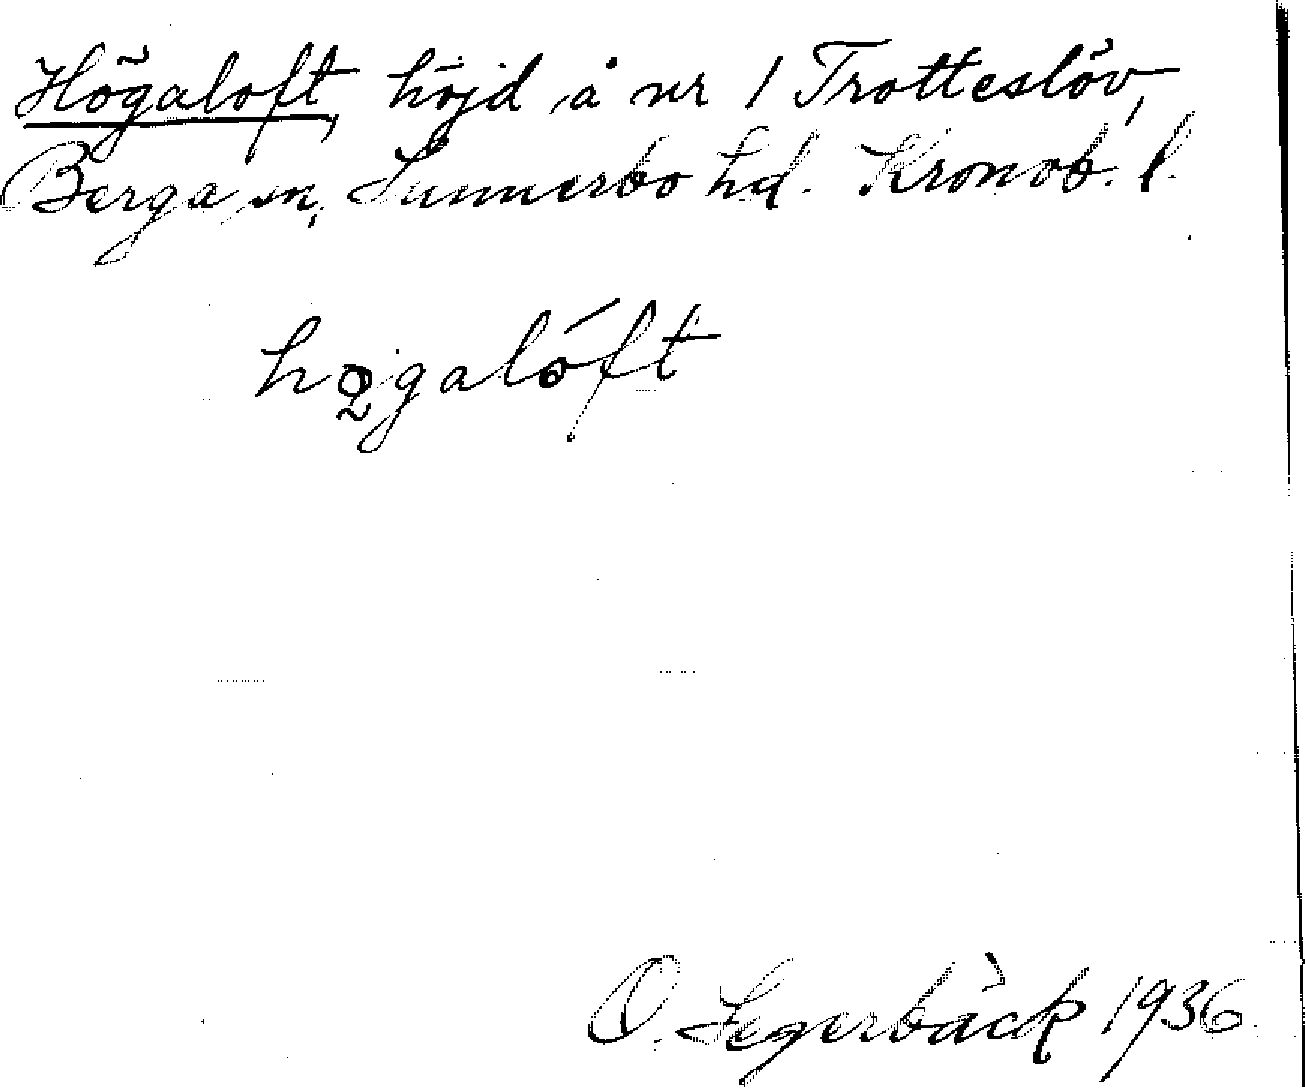 Högaloft, höjd å nr 1 Trotteslöv,
Berga sn, Sunnerbo hd. Kronob. l.
hǫgalóft
O. Segerbäck 1936.